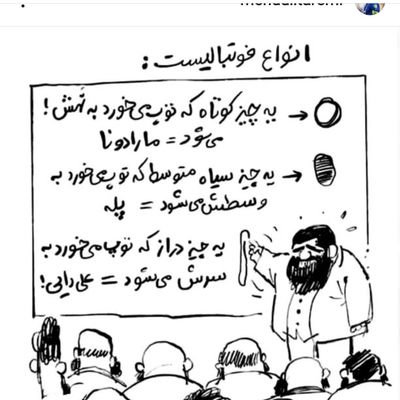 انواع فوتبالیست:
یه چیز کوتاه که توپ می‌خورد به تهش!
می‌شود = مارادونا
یه چیز سیاه متوسط که توپ می‌خورد به
وسطش می‌شود = پله
یه چیز دراز که توپ می‌خورد به
سرش می‌شود = علی دایی!